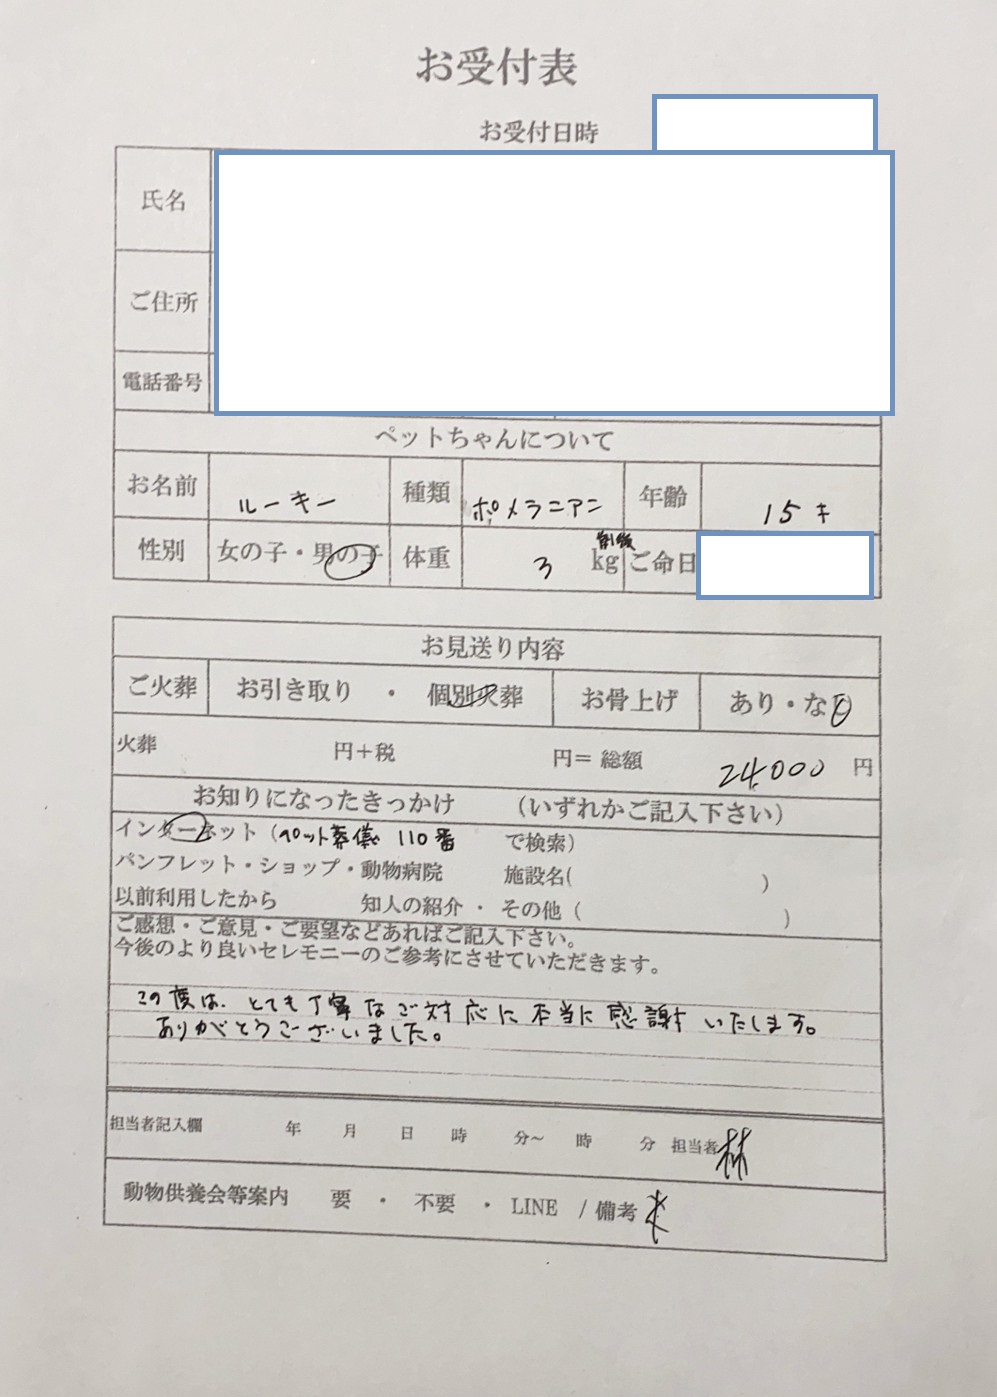 お受付表
お受付日時
氏名
ご住所
電話番号
ペットちゃんについて
お名前 ルーキー 種類 ポメラニアン 年齢 15才
性別 女の子・男の子 体重 3 前後 kg ご命日
お見送り内容
ご火葬 お引き取り ・ 個別火葬 お骨上げ あり・なし
火葬 円+税 円= 総額 24,000 円
お知りになったきっかけ (いずれかご記入下さい)
インターネット(ペット葬儀 110番 で検索)
パンフレット・ショップ・動物病院 施設名( )
以前利用したから 知人の紹介 ・ その他( )
ご感想・ご意見・ご要望などあればご記入下さい。
今後のより良いセレモニーのご参考にさせていただきます。
この度は、とても丁寧なご対応に本当に感謝いたします。
ありがとうございました。
担当者記入欄 年 月 日 時 分〜 時 分 担当者 林
動物供養会等案内 要 ・ 不要 ・ LINE / 備考